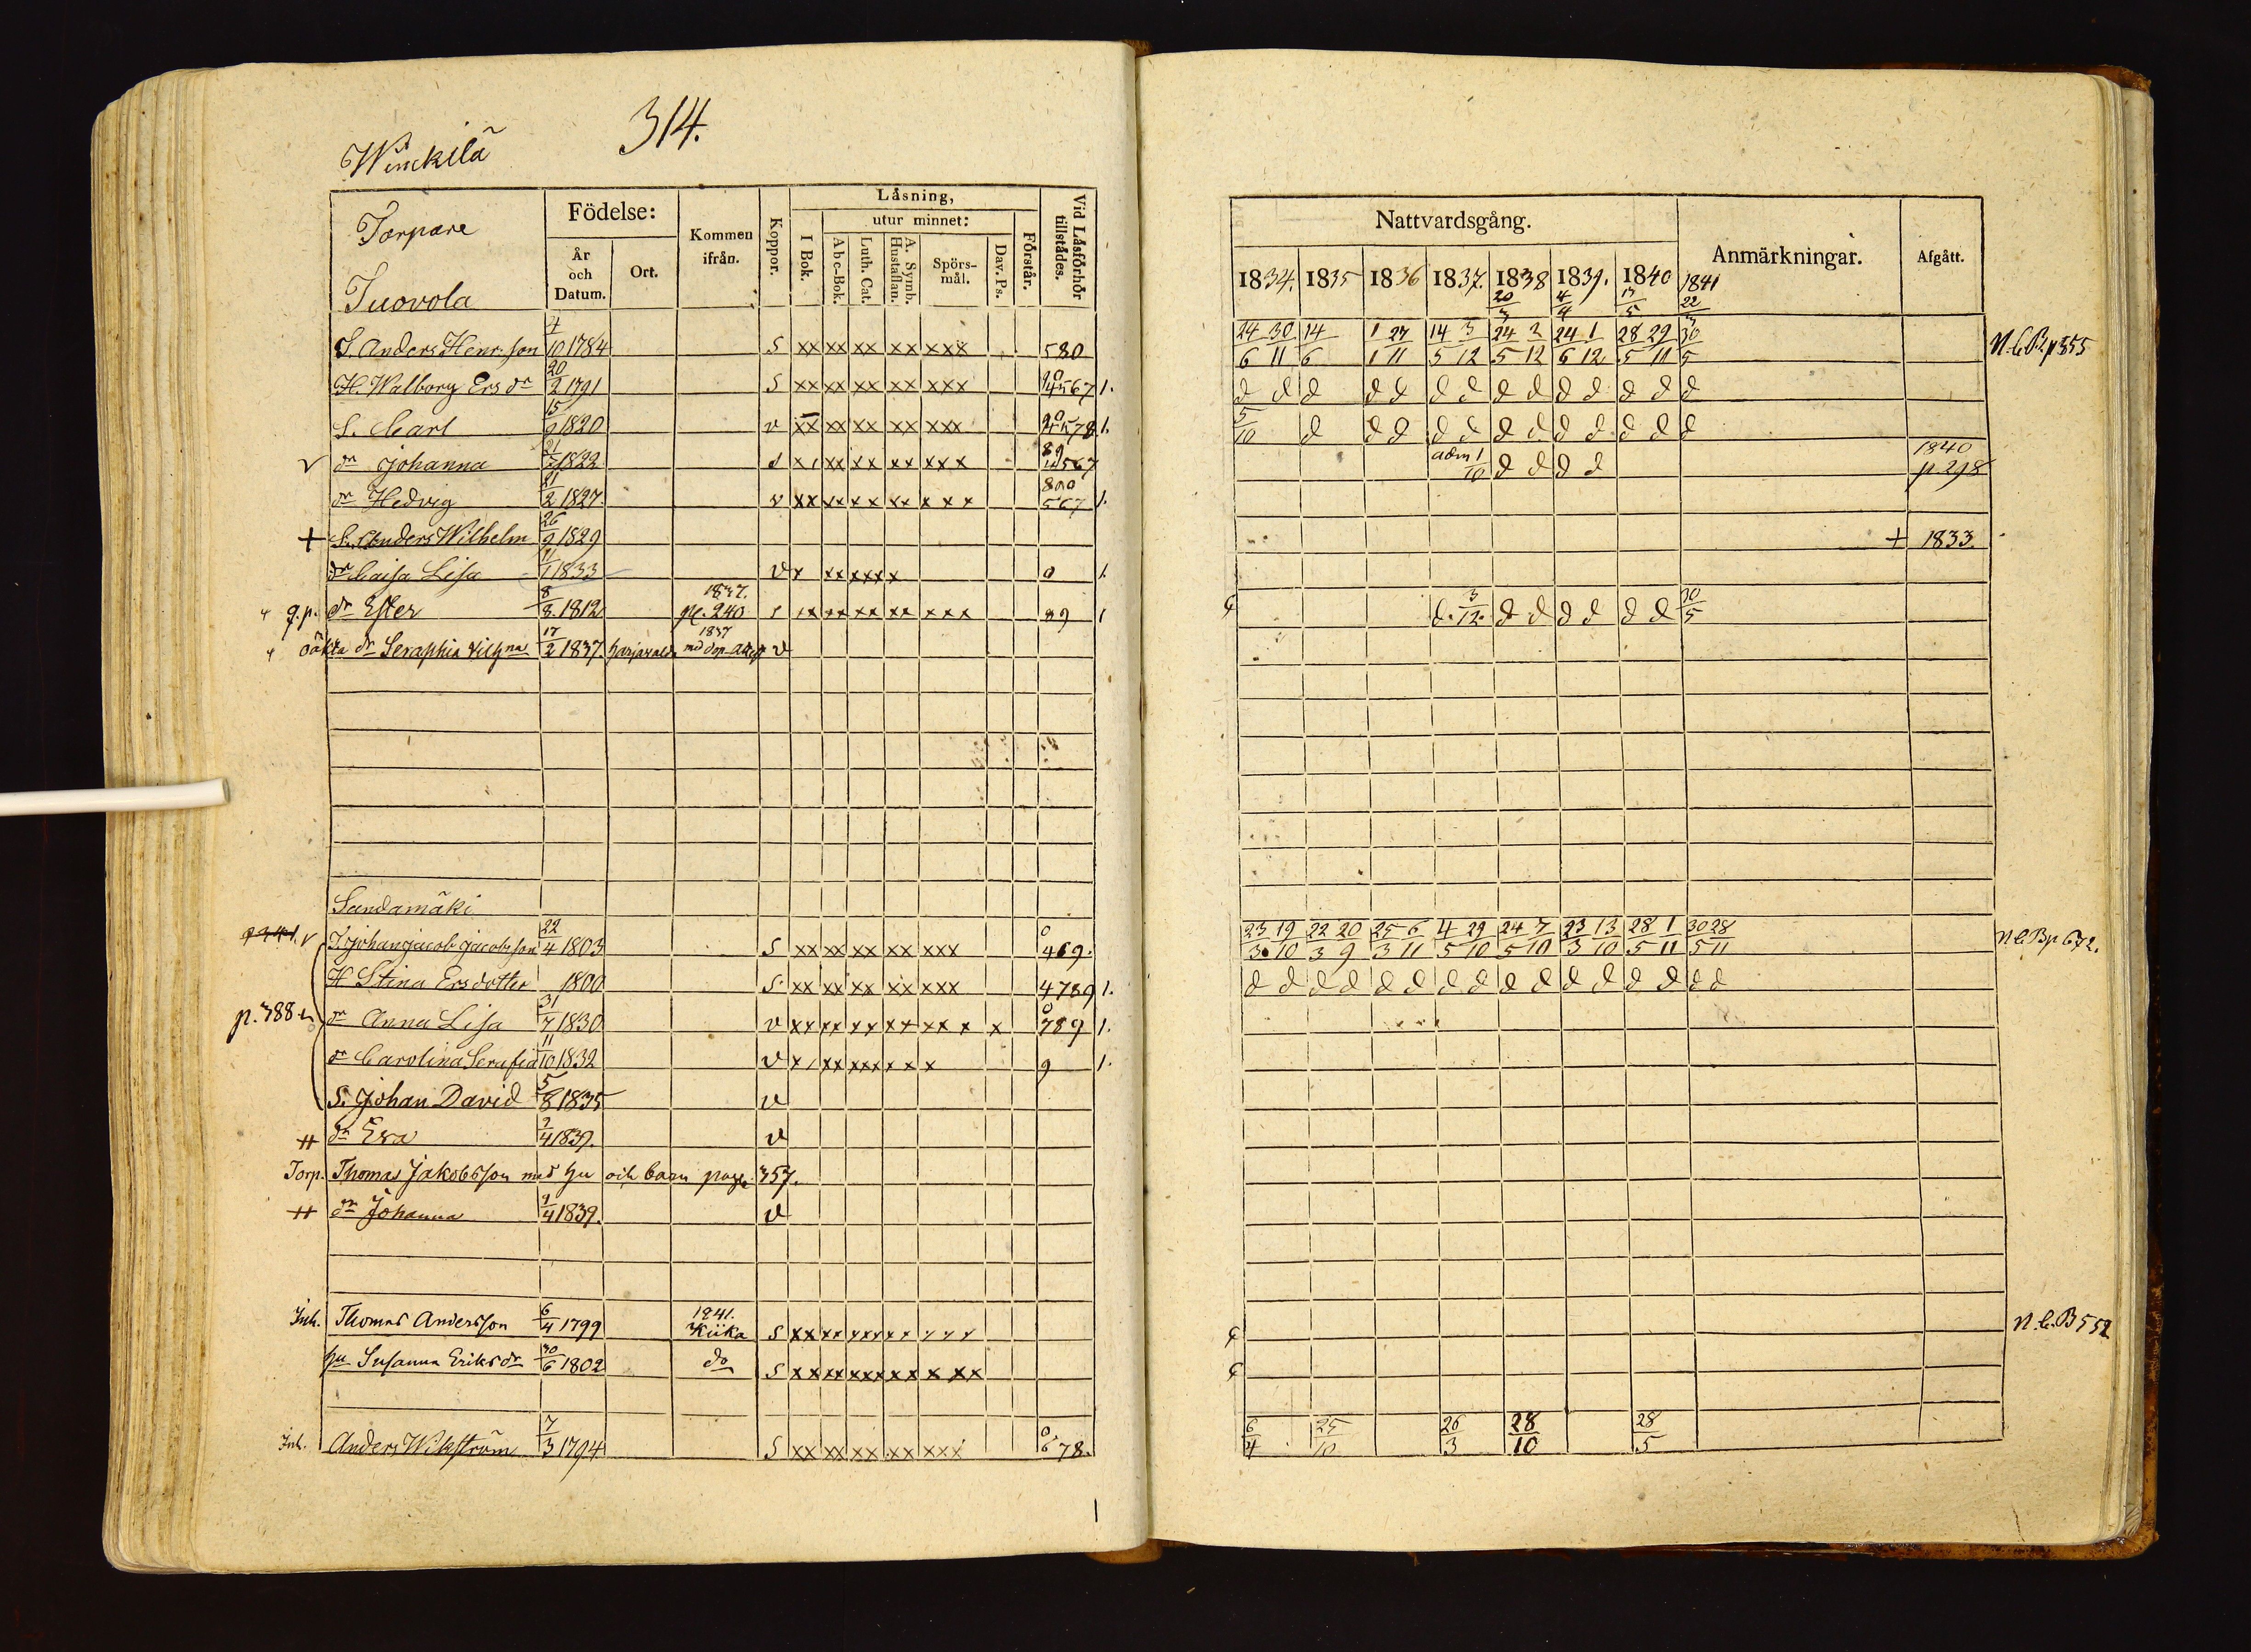 314.
Winckilä
Torpare
Födelse:
Kommen ifrån.
Koppor.
Låsning,
I Bok.
utur minnet:
A b c-Bok.
Luth. Cat.
A. Symb. Hustaflan.
Spörs-mål.
Dav. Ps.
Förstår.
Vid Låsförhör tillstådes.
År och Datum.
Ort.
Juovola
T. Anders Henr. son 4/10 1784 S xx xx xx xx xxx 580
H. Walborg Ers dr 20/2 1791 S xx xx xx xx xxx 4567 1.
S. Carl 15/9 1820 v xx xx xx xx xxx 4578 1.
v dr Johanna 1822 89 567
dr Hedvig 21/2 1827. v xx xx xx xx xxx 567 1.
+ S. Anders Wilhelm 26/9 1829
dr Caisa Lisa 1833 v 0 1.
q.p. dr Ester 8/8. 1812 1837. pl. 240 s xx xx xx xx xxx 89 1
oäkta dr Seraphia 17/2 1837. 1837 v
Sandamäki
v T. Johan Jacob Jacobsson 22/4 1803 S xx xx xx xx xxx 0 469.
H Stina Ersdotter 1800 S. xx xx xx xx xxx 4789 1.
p. 388 dr Anna Lisa 31/7 1830 v xx xx xx xx xx x x 0 789 1.
dr Carolina Serafia 11/10 1832 v 9 1.
S. Johan David 5/8 1835 v
++ dr Eva 2/4 1839. v
Torp. Thomas Jakobsson med hu och barn page 357.
++ dr Johanna 1839. v
Inh. Thomas Andersson 6/4 1799 1841. Kiika S
hu Susanna Eriksdr 30/6 1802 do S
Inh. Anders Wikström 7/3 1794 S xx xx xx xx xxx 0 678.
Nattvardsgång.
Anmärkningar.
Afgått.
1834. 1835 1836 1837. 1838 1839. 1840 1841
20/3 4/4 22/3
24/6 30/11 14/6 1/1 27/11 14/5 3/12 24/5 2/12 24/6 1/12 28/5 29/11 30/5 N.C.B. p 355
d d d d d d d d d d d d d d
5/10 d d d d d d d d d d d d
adm 1/10 d d d d 1840 p. 298
+ 1833.
d. 3/12. d d d d d d 30/5
23/3 19/10 22/3 20/9 25/3 6/11 4/5 29/10 24/5 7/10 23/3 13/10 28/5 1/11 30/5 28/11 N.C.B p 672.
d d d d d d d d d d d d d d d d
N.C.B 552
6/4 25/10 26/3 28/10 28/5